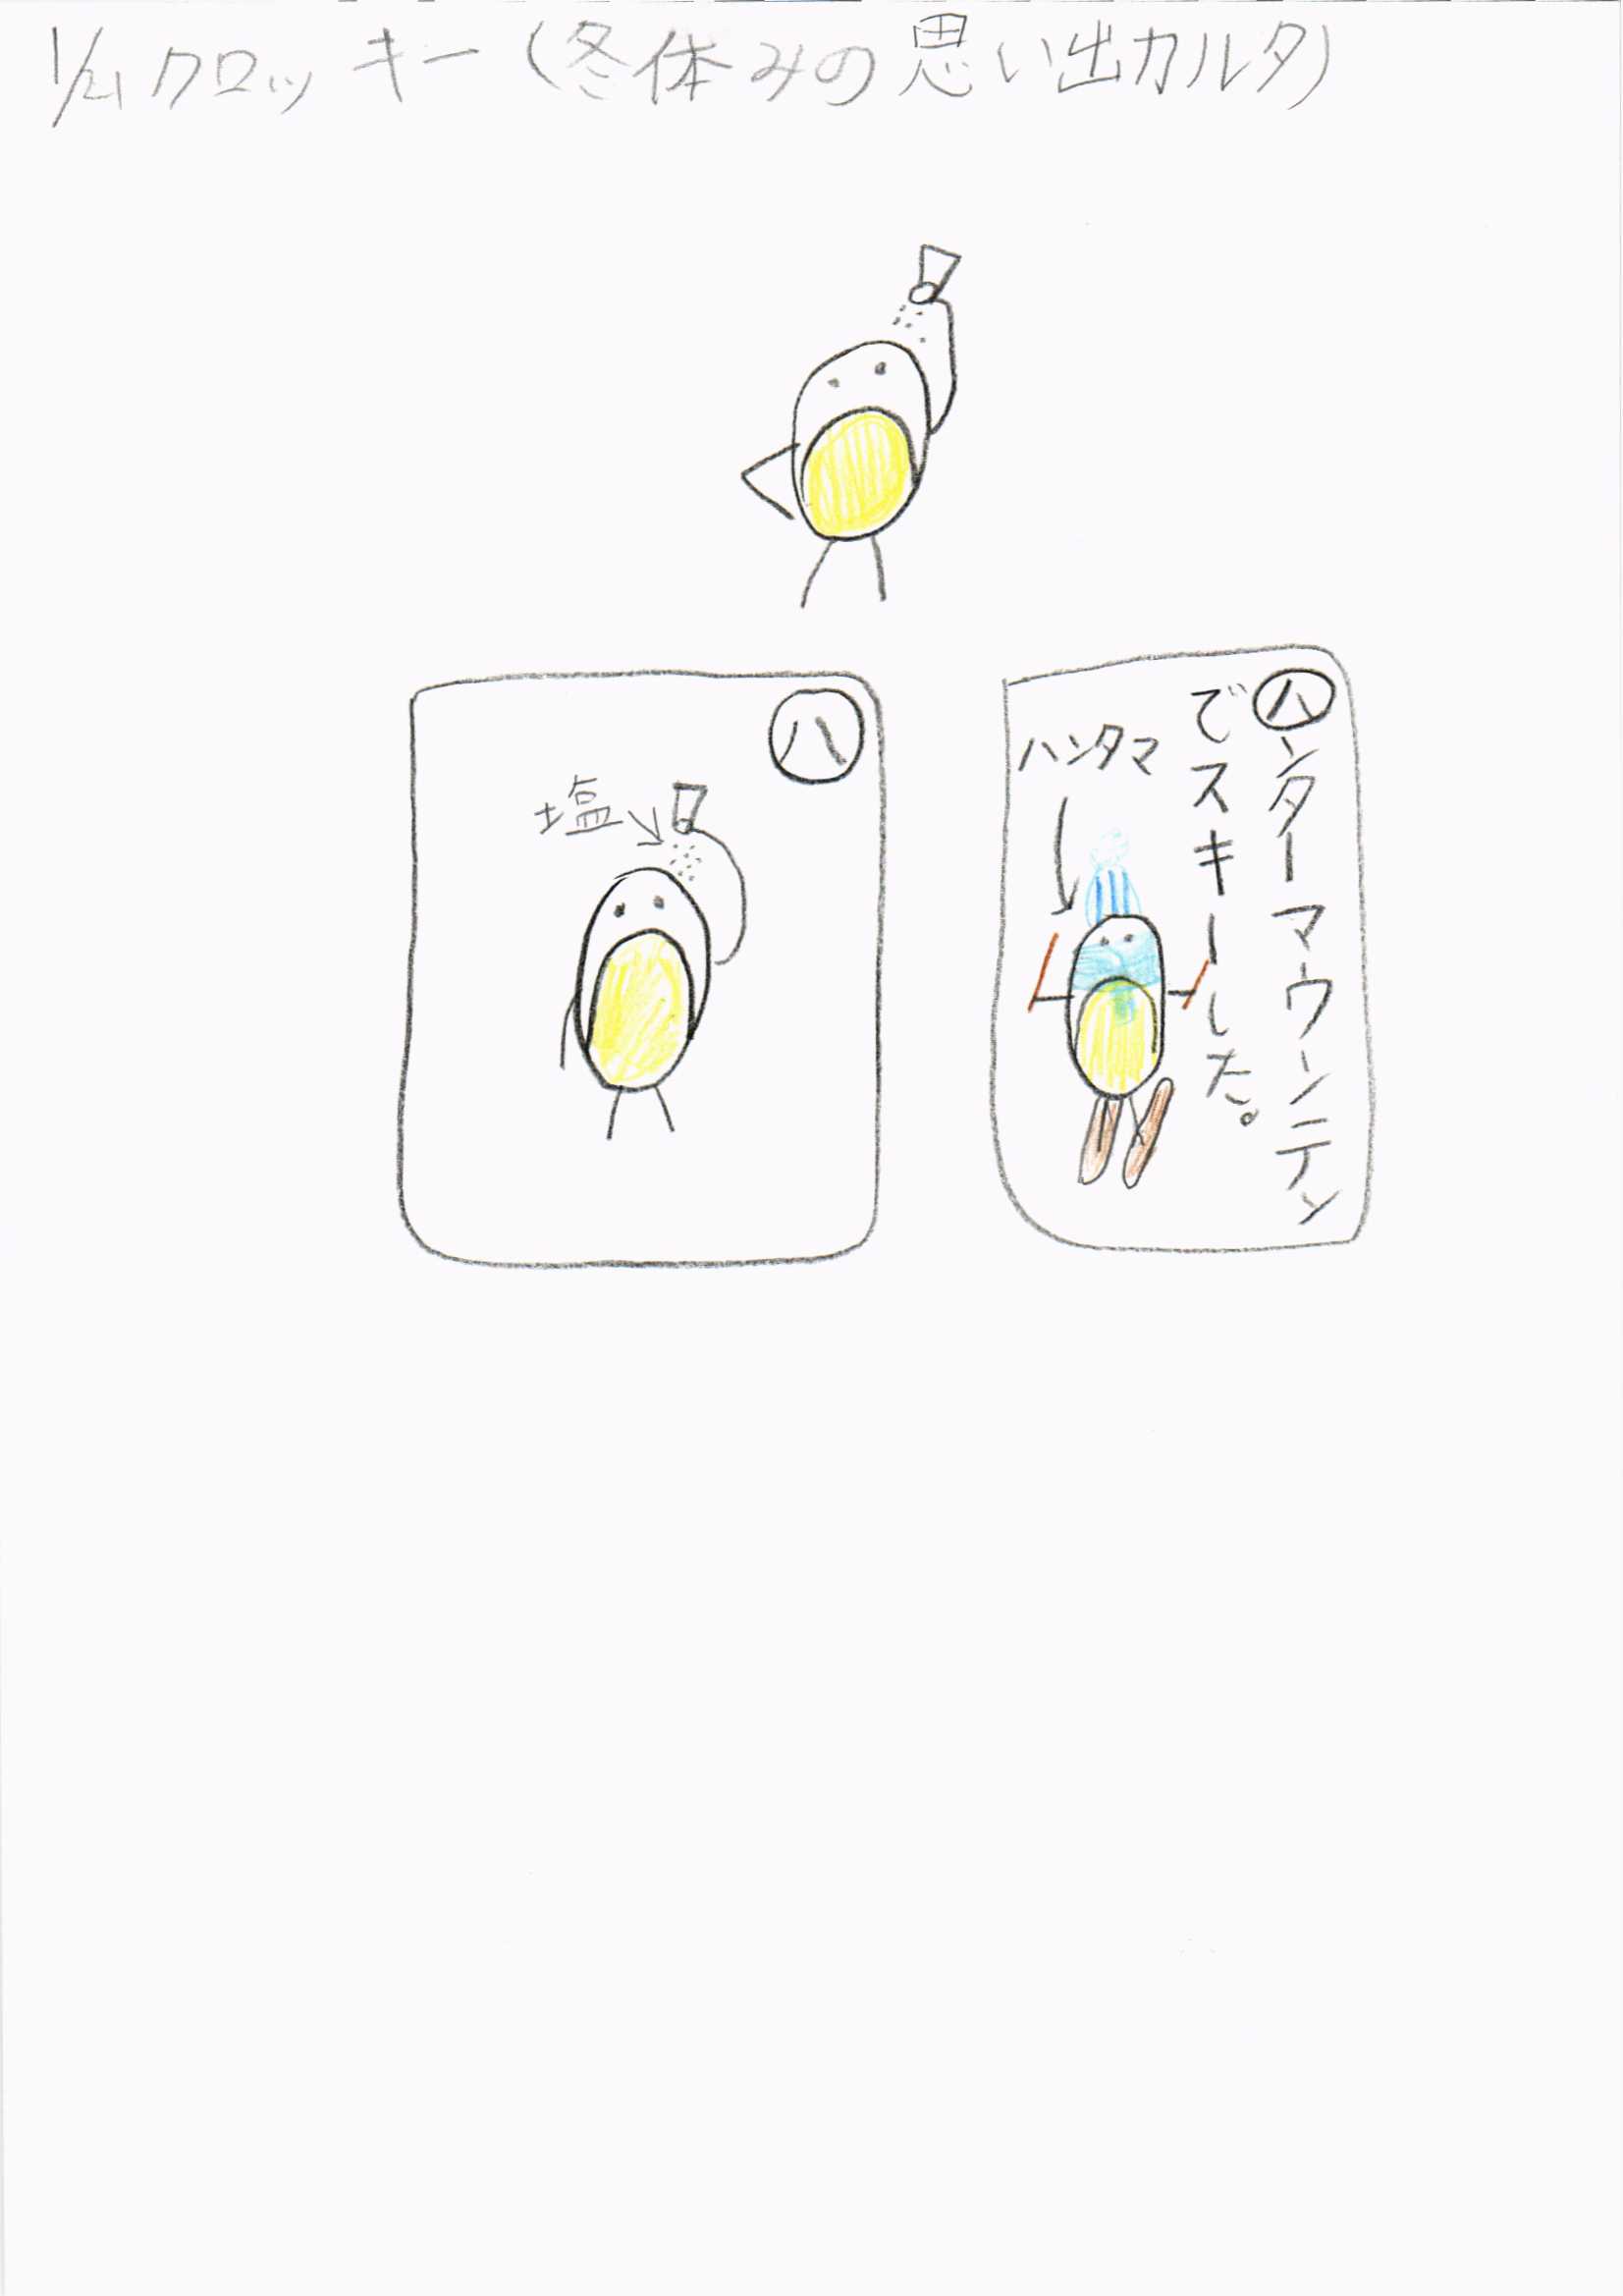 1/21 クロッキー(冬休みの思い出カルタ)
ハ
塩
ハンターマウンテン
でスキーした。
ハンタマ